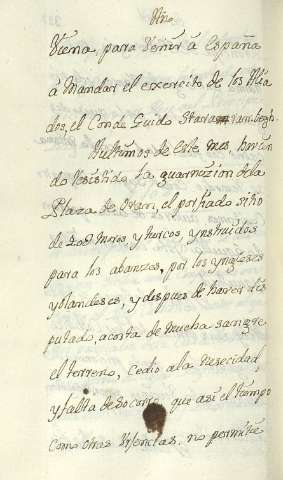 Vino
Viena, para Venir à España
à Mandar el exercito de los Alia
dos, el Conde Guido Stara rambergh.
Aultimos de este mes, havien
do resistido La guarnizion de la
Plaza de Oran, el porfiado sitio
de Moros, y turcos, ynstruidos
para los abanzes, por los yngleses
y olandeses, y despues de haver dis
putado, acosta de mucha sangre
el terreno, Cedio ala Nesecidad,
y falta de Socorro, que asi el tiempo
como otras Vrjencias, no permitie